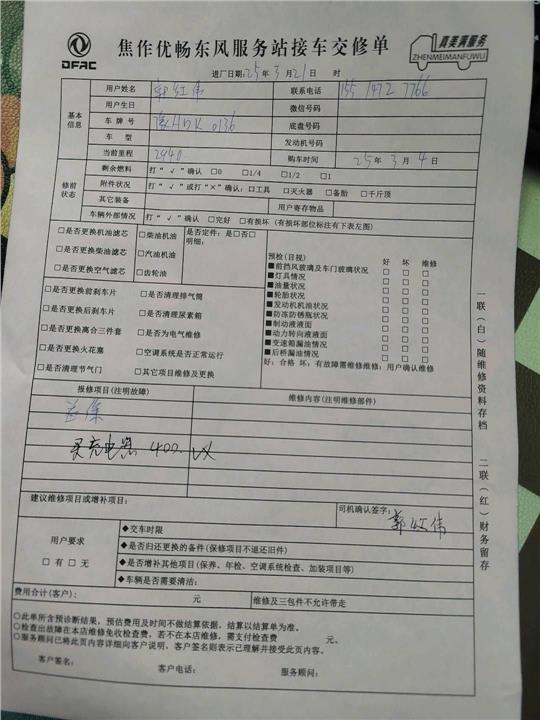 DFAC
焦作优畅东风服务站接车交修单
真美满服务
ZHENMEIMANFUWU
进厂日期:25年3月21日 时
基本信息
用户姓名 郭红伟 联系电话 155 1472 7766
用户生日 微信号码
车牌号 豫HDK 0136 底盘号码
车型 发动机号码
当前里程 2940 购车时间 25年3月4日
修前状态
剩余燃油 打“√”确认 □0 □1/4 □1/2 □1
附件状况 打“√”或打“×”确认:□工具 □灭火器 □备胎 □千斤顶
其它装备 用户寄存物品
车辆外部情况 打“√”确认 □完好 □有损坏(有损坏部位标注有下表左图)
□是否更换机油滤芯 □柴油机油 是否定件:是□否□
□是否更换柴油滤芯 □汽油机油 明细:
□是否更换空气滤芯 □齿轮油
□是否更换前刹车片 □是否清理排气筒
□是否更换后刹车片 □是否清理尿素箱
□是否更换离合三件套 □是否为电气维修
□是否更换火花塞 □空调系统是否正常运行
□是否清理节气门 □其它项目维修及更换
预检(目视) 好 坏 维修
■前挡风玻璃及车门玻璃状况 □ □ □
■灯具情况 □ □ □
■油量状况 □ □ □
■轮胎状况 □ □ □
■发动机机油状况 □ □ □
■防冻防锈瓶状况 □ □ □
■制动液液面 □ □ □
■动力转向液液面 □ □ □
■变速箱漏油情况 □ □ □
■后桥漏油情况 □ □ □
好:合格 坏:有故障需维修维修:用户确认维修
报修项目(注明故障) 维修内容(注明维修部件)
首保
买充电器 400.
建议维修项目或增补项目:
司机确认签字: 郭红伟
用户要求
□有□无
◆交车时限
◆是否归还更换的备件(保修项目不退还旧件)
◆是否增补其他项目(保养、年检、空调系统检查、加装项目等)
◆车辆是否需要清洁:
费用合计(客户): 元 维修及三包件不允许带走
○此单所含预诊断结果,预估费用及时间不做结算依据,结算以结算单为准。
○检查出故障在本店维修免收检查费,若不在本店维修,需支付检查费 元。
○服务顾问已将此页内容详细向客户说明,客户签名则表示已理解并接受此页内容。
客户签名: 客户电话: 服务顾问:
一联(白)随维修资料存档
二联(红)财务留存